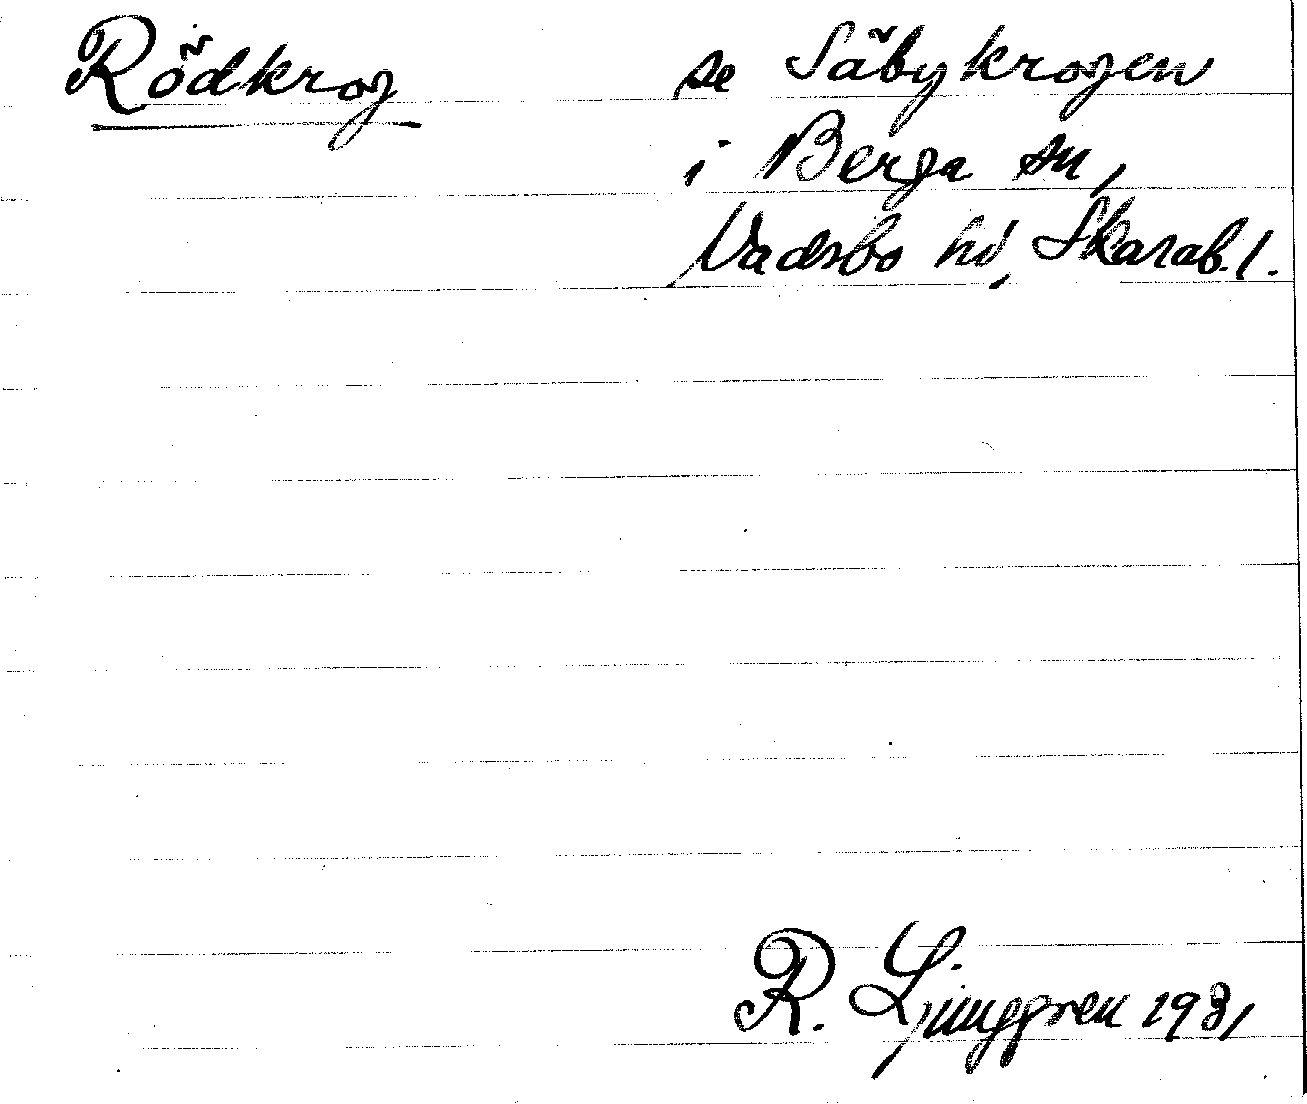 Rödkrog se Säbykrogen
i Berga sn,
Vadsbo hd, Skarab.l.
R. Ljunggren 1931